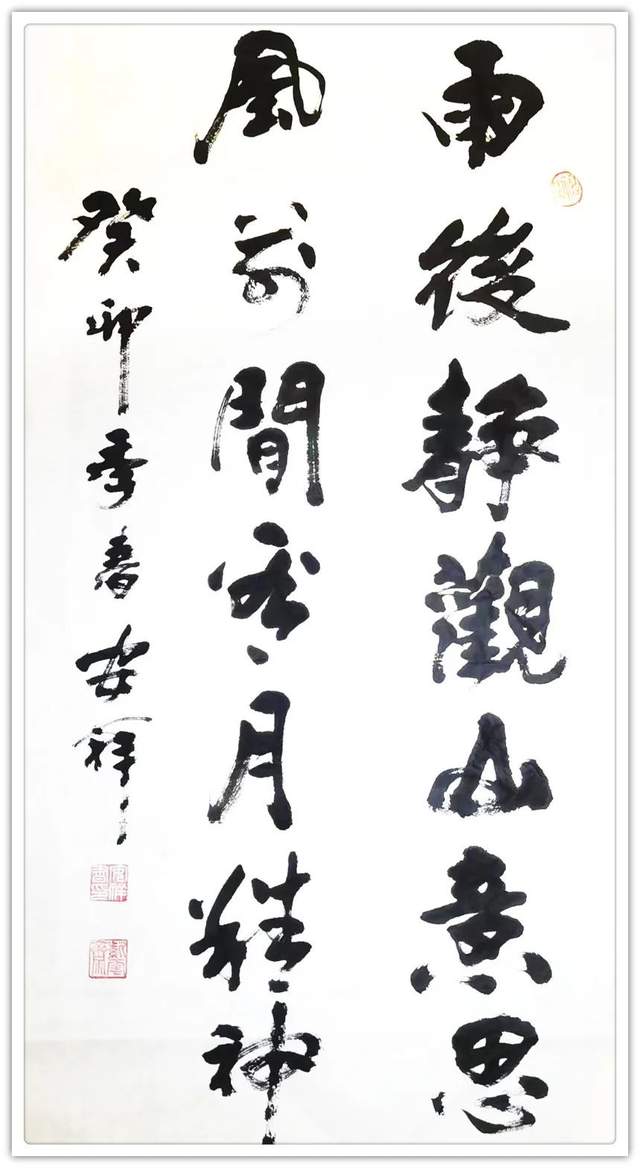 雨後静觀山意思
風前閒看月精神
癸卯季春安祥